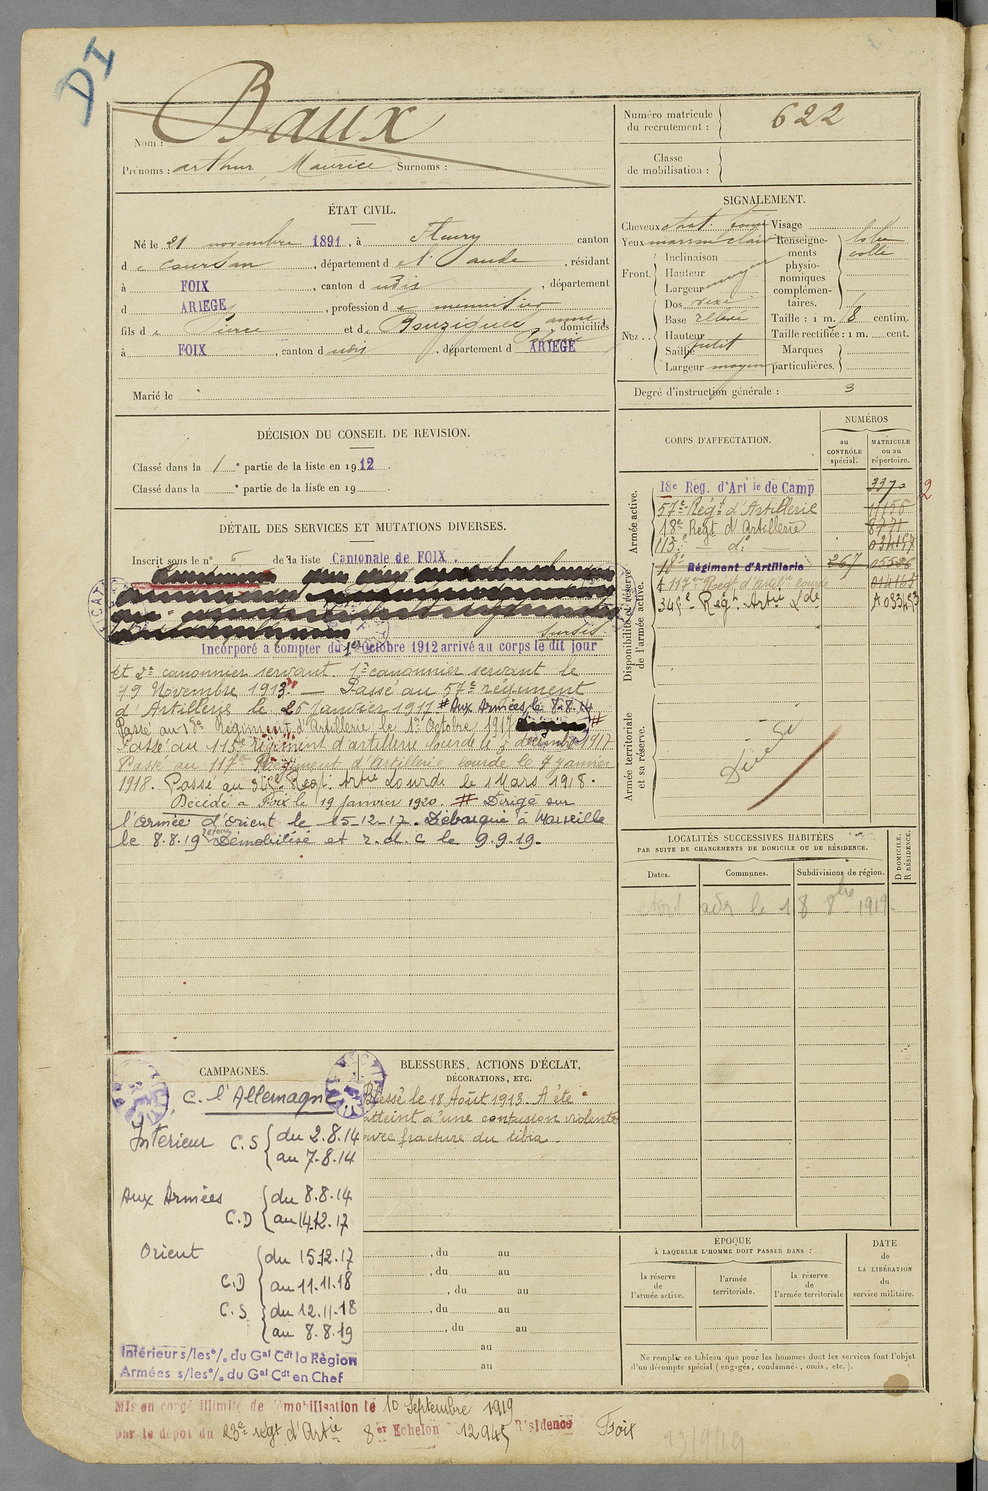 DI
Nom : Baux
Prénoms : arthur, Maurice Surnoms :
Numéro matricule du recrutement : 622
Classe de mobilisation :
ÉTAT CIVIL.
Né le 21 novembre 1891, à Fleury canton
d e coursan, département d e l'aude, résidant
à FOIX, canton d udis, département
d ARIEGE, profession d e menuisier
fils d e Pierre et de Bouzigues anne domiciliés
à FOIX, canton d udis, département d ARIEGE
Marié le
SIGNALEMENT.
Cheveux chat. foncé Visage
Yeux marron clair Renseigne-
ments
physio-
nomiques
complémen-
taires.
collé
Front.
Inclinaison
Hauteur
Largeur moyen
Nez . .
Dos
Base relevé
Hauteur
Saillie petit
Largeur moyen
Taille : 1 m. 68 centim.
Taille rectifiée : 1 m. cent.
Marques
particulières.
Degré d'instruction générale : 3
DÉCISION DU CONSEIL DE REVISION.
Classé dans la 1e partie de la liste en 1912.
Classé dans la e partie de la liste en 19
DÉTAIL DES SERVICES ET MUTATIONS DIVERSES.
Inscrit sous le n° 5 de la liste Cantonale de FOIX
sursis
Incorporé a compter du 1er Octobre 1912 arrivé au corps le dit jour
et 2e canonnier servant. 1e canonnier servant le
19 Novembre 1913. — Passé au 57e régiment
d'Artillerie le 26 Janvier 1917 # Aux Armées le 8-8-14
Passé au 18e Régiment d'Artillerie le 1er Octobre 1917 #
Passé au 115e régiment d'artillerie lourde le 5 décembre 1917
Passé au 117e Régiment d'Artillerie lourde le 9 janvier
1918. Passé au 345e Regt. Artie Lourde le 1 Mars 1918.
Décédé à Foix le 19 janvier 1920. # Dirigé sur
l'Armée d'orient le 15-12-17. Débarqué à Marseille
le 8.8.19 retour Démobilisé et r.d.c le 9.9.19.
CORPS D'AFFECTATION.
NUMÉROS
au CONTRÔLE spécial.
MATRICULE ou au répertoire.
Armée active.
Disponibilité et réserve de l'armée active.
Armée territoriale et sa réserve.
18e Reg. d'Art ie de Camp 3370 2
57e Régt d'Artillerie 11156
18e Regt d'Artillerie 8771
115e d°
18e Régiment d'Artillerie 267 05526
117e Regt d'artie lourde
345e Régt Artie Lde
Décédé
LOCALITÉS SUCCESSIVES HABITÉES
PAR SUITE DE CHANGEMENTS DE DOMICILE OU DE RÉSIDENCE.
D DOMICILE. R RÉSIDENCE.
Dates. Communes. Subdivisions de région.
adr le 18 8bre 1919
CAMPAGNES.
C. l'Allemagne
Intérieur C.S { du 2.8.14
au 7.8.14
Aux Armées { du 8.8.14
C.D { au 14.12.17
Orient { du 15.12.17
C.D { au 11.11.18
C.S { du 12.11.18
{ au 8.8.19
Intérieur s/les°/. du Gal Cdt la Région
Armées s/les°/. du Gal Cdt en Chef
BLESSURES, ACTIONS D'ÉCLAT,
DÉCORATIONS, ETC.
Blessé le 18 Août 1913. A été
atteint d'une contusion violente
avec fracture du tibia
, du au
, du au
, du au
, du au
, du au
au
au
ÉPOQUE
À LAQUELLE L'HOMME DOIT PASSER DANS :
la réserve de l'armée active.
l'armée territoriale.
la réserve de l'armée territoriale
DATE de LA LIBÉRATION du service militaire.
Ne remplir ce tableau que pour les hommes dont les services font l'objet
d'un décompte spécial (engagés, condamnés, omis, etc.).
Mis en congé illimité de démobilisation le 10 Septembre 1919
par le dépôt du 23e régt d'Artie 8er Echelon 12945 Résidence Foix
23/9/19